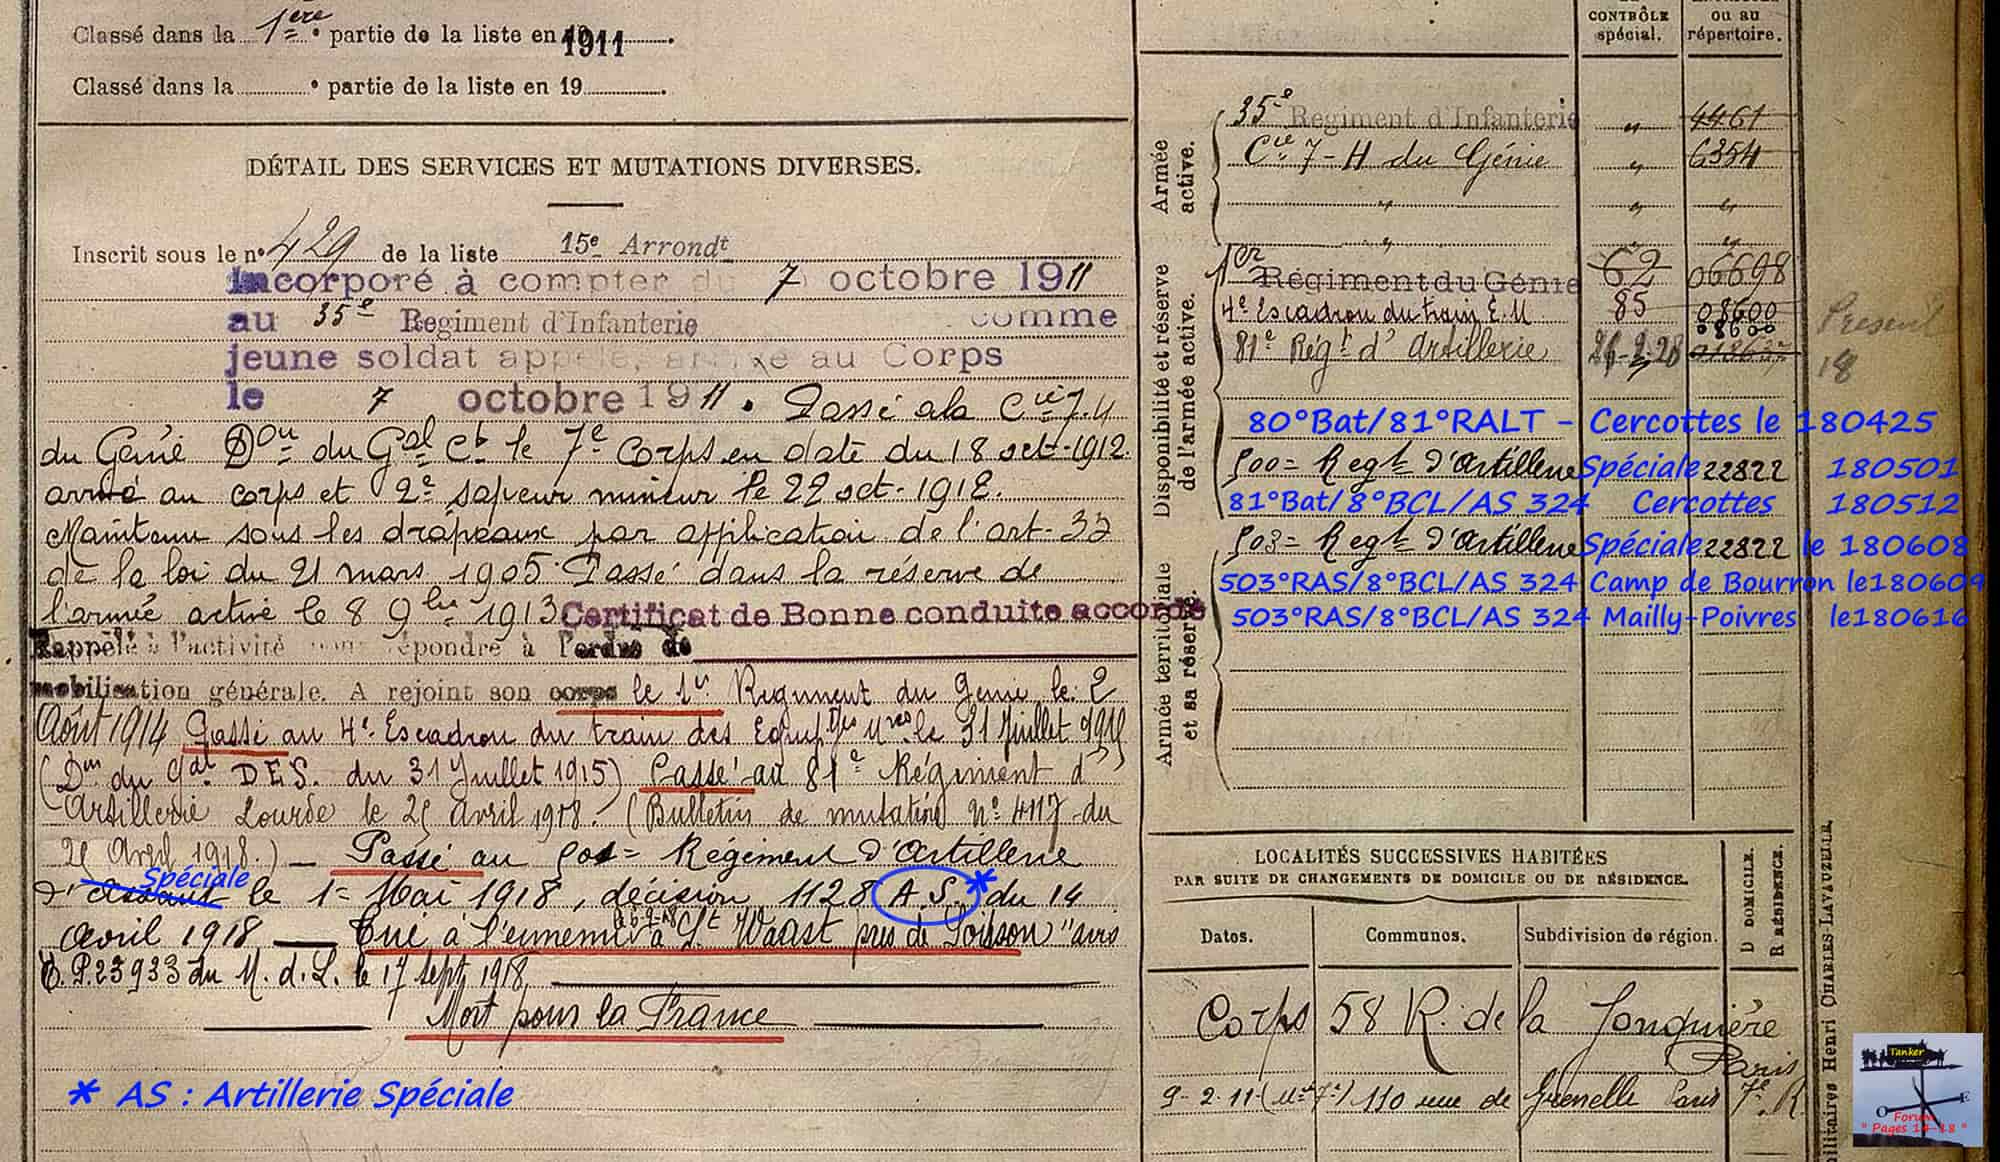 Classé dans la 1ère partie de la liste en 1911
Classé dans la partie de la liste en 19
DÉTAIL DES SERVICES ET MUTATIONS DIVERSES.
Inscrit sous le n° 429 de la liste 15e Arrondt
Incorporé à compter du 7 octobre 1911
au 35e Regiment d'Infanterie comme
jeune soldat appelé, arrivé au Corps
le 7 octobre 1911. Passé à la Cie 7.4
du Génie Don du Gal Ct le 7e Corps en date du 18 oct. 1912.
arrivé au corps et 2e sapeur mineur le 22 oct. 1912.
Maintenu sous les drapeaux par application de l'art. 33
de la loi du 21 mars 1905. Passé dans la réserve de
l'armée active le 8 9bre 1913 Certificat de Bonne conduite accordé
Rappelé à l'activité pour répondre à l'ordre de
mobilisation générale. A rejoint son corps le 1er Regiment du Génie le 2
Août 1914 Passé au 4e Escadron du train des Equipges Mres le 31 Juillet 1915
(Don du Gal D.E.S. du 31 Juillet 1915) Passé au 81e Régiment d'
Artillerie Lourde le 25 avril 1918. (Bulletin de mutation N° 4117 du
25 Avril 1918.) — Passé au 500= Régiment d'Artillerie
Spéciale
d'assaut le 1= Mai 1918, décision 1128 A.S.* du 14
avril 1918 — Tué à l'ennemi à St Waast près de Soisson "avis
P.23933 du M.d.L. le 17 sept. 1918.
Mort pour la France
* AS : Artillerie Spéciale
CONTRÔLE spécial.
ou au répertoire.
Armée active.
35e Regiment d'Infanterie " 4461
Cie 7-H du Génie " 6354
Disponibilité et réserve de l'armée active.
1er Régiment du Génie 62 06698
4e Escadron du train E.M 85 08600
08600
81e Régt d'Artillerie
Present
18
80°Bat/81°RALT - Cercottes le 180425
500= Regt d'Artillerie Spéciale 22822 180501
81°Bat/8°BCL/AS 324 Cercottes 180512
503= Regt d'Artillerie Spéciale 22822 le 180608
Armée territoriale et sa réserve
503°RAS/8°BCL/AS 324 Camp de Bourron le180609
503°RAS/8°BCL/AS 324 Mailly-Poivres le180616
LOCALITÉS SUCCESSIVES HABITÉES
PAR SUITE DE CHANGEMENTS DE DOMICILE OU DE RÉSIDENCE.
Dates. Communes. Subdivision de région. D DOMICILE. R RÉSIDENCE.
Corps 58 R. de la Jonquière
Paris
9-2-11 110 rue de Grenelle Paris 7e R
Henri CHARLES-LAVAUZELLE.
Tanker
O E
Forum
" Pages 14-18 "